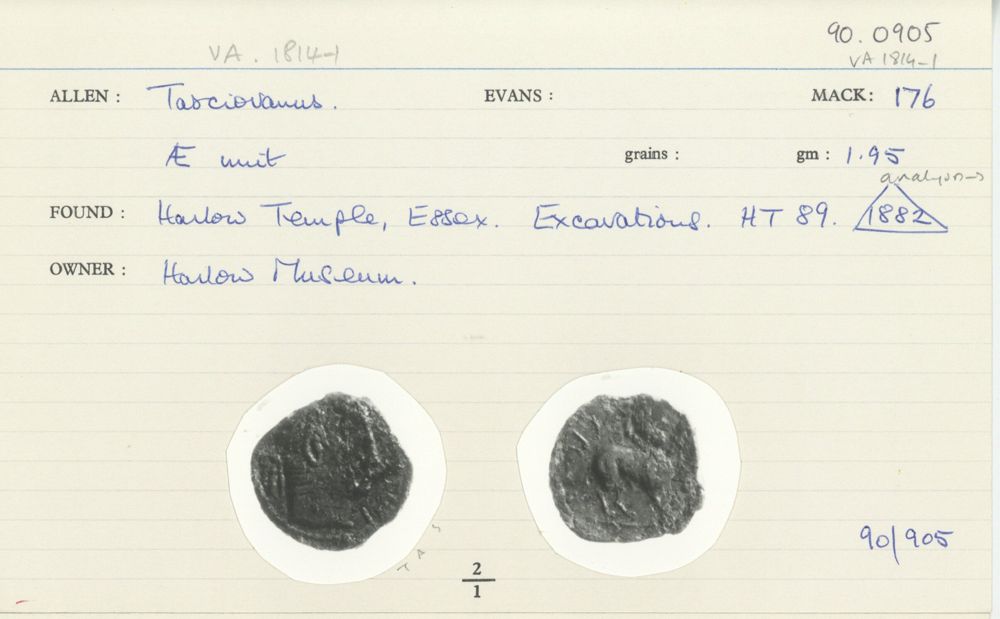 90.0905
VA. 1814-1
VA 1814-1
ALLEN : Tasciovanus. EVANS : MACK: 176
Æ unit grains : gm : 1.95
analysis
FOUND : Harlow Temple, Essex. Excavations. HT 89. 1882
OWNER : Harlow Museum.
T A S
90/905
2
1